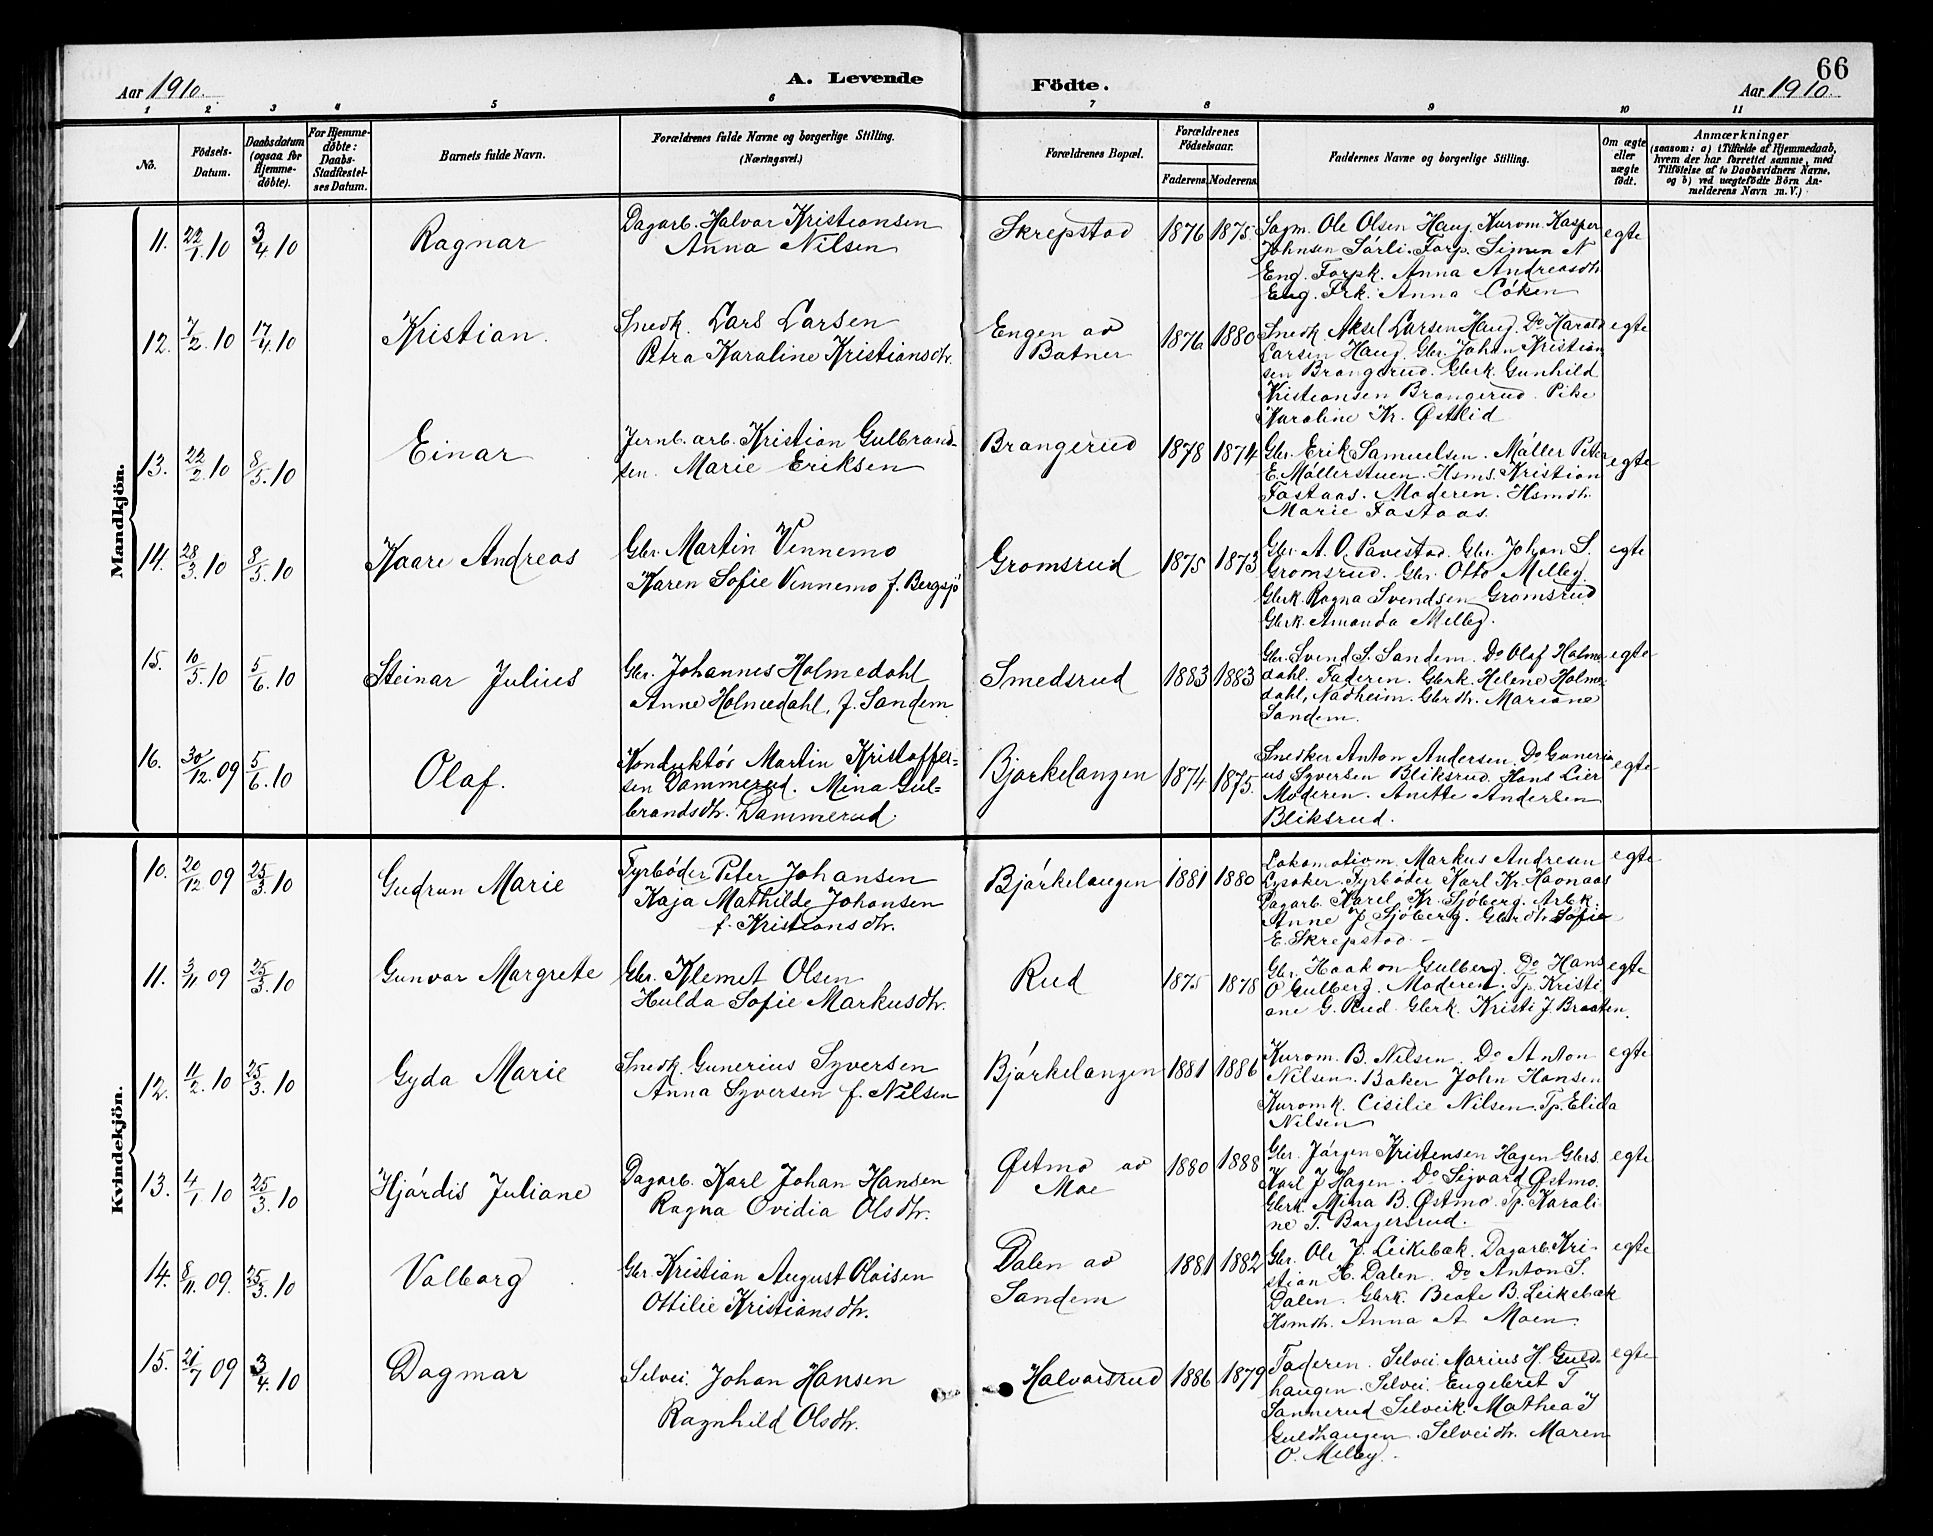 66
Aar 1910.
A. Levende
Födte.
Aar 1910.
1 2. 3 4 5 6 7 8 9 10 11
No.
Födsels-
Datum.
Daabsdatum
(ogsaa for
Hjemme-
döbte).
For Hjemme-
döbte:
Daabs-
Stadfæstel-
ses Datum.
Barnets fulde Navn.
Forældrenes fulde Navne og borgerlige Stilling.
(Næringsvei.)
Forældrenes Bopæl.
Forældrenes
Födselsaar.
Faderens.
Moderens.
Faddernes Navne og borgerlige Stilling.
Om ægte
eller
uægte
födt.
Anmærkninger
(saasom: a) i Tilfælde af Hjemmedaab,
hvem der har forrettet samme, med
Tilföielse af to Daabsvidners Navne,
og b) ved uægtefödte Börn An-
melderens Navn m. V.)
Mandkjön.
11. 22/1 10 3/4 10 Ragnar
Dagarb. Halvor Kristiansen
Anna Nilsen
Skrepstad 1876 1875
Sagm. Ole Olsen Haug. Kurvm. Kasper
Johnsen Sörli. Forp. Simen N
Eng. Forpk. Anna Andreasdtr.
Eng. Frk. Anna Cöken
egte
12. 7/2 10 17/4 10 Kristian.
Snedk. Lars Larsen
Petra Karoline Kristiansdtr.
Engen av
Botner
1876 1880
Snedk. Aksel Larsen Haug. Do Harald
Larsen Haug. Gbr. Johan Kristian
sen Brangerud. Gbrk. Gunhild
Kristiansen Brangerud. Pike
Karoline Kr. Østlid
egte
13. 22/2 10 8/5 10 Einar
Jernb. arb. Kristian Gulbrand-
sen. Marie Eriksen
Brangerud 1878 1874
Gbr. Erik Samuelsen. Möller Peter
E. Möllerstuen. Hsms. Kristian
Fostaas. Moderen. Hsmdtr.
Marie Fostaas.
egte
14. 28/3 10 8/5 10 Kaare Andreas
Gbr. Martin Vennemo
Karen Sofie Vennemo f. Bergsjö
Gromsrud 1875 1873
Gbr. A. O. Pavestad. Gbr. Johan S.
Gromsrud. Gbr. Otto Melby.
Gbrk. Ragna Svendsen Gromsrud
Gbrk. Amanda Melby.
egte
15. 10/5 10 5/6 10 Steinar Julius
Gbr. Johannes Holmedahl
Anne Holmedahl, f. Sandem
Smedsrud 1883 1883
Gbr. Svend S. Sandem. Do Olaf Holme
dahl. Faderen. Gbrk. Helene Holme
dahl, Nadheim. Gbrdtr. Mariane
Sandem.
egte
16. 30/12 09 5/6 10 Olaf.
Konduktör Martin Kristoffer-
sen Dammerud. Mina Gul-
brandsdtr. Dammerud.
Bjørkelangen 1874 1875.
Snedker Anton Andersen. Do Guneri
us Syversen Bliksrud. Hans Lier
Moderen. Anette Andersen
Bliksrud.
egte
Kvindekjön.
10. 20/12 09 25/3 10 Gudrun Marie
Fyrböder Peter Johansen
Kaja Mathilde Johansen
f. Kristiansdtr.
Bjørkelangen 1881 1880
Lokomotivm. Markus Andresen
Lysaker. Fyrböder Karl Kr. Havnaas
Dagarb. Karel Kr. Sjöberg. Arbk.
Anne J Sjöberg. Gbrdtr. Sofie
E. Skrepstad.
egte
11. 3/11 09 25/3 10 Gunvor Margrete
Gbr. Klemet Olsen
Hulda Sofie Markusdtr.
Rud 1875 1878
Gbr. Haakon Gulberg. Do Hans
O Gulberg. Moderen. Tp. Kristi
ane G. Rud. Gbrk. Kristi J. Braaten.
egte
12. 11/2 10 25/3 10 Gyda Marie
Snedk. Gunerius Syversen
Anna Syversen f. Nilsen
Bjørkelangen 1881 1886
Kurvm. B. Nilsen. Do Anton
Nilsen. Baker John Hansen
Kurvmk. Cisilie Nilsen. Tp. Elida
Nilsen
egte
13. 4/1 10 25/3 10 Hjördis Juliane
Dagarb. Karl Johan Hansen
Ragna Ovidia Olsdtr.
Østmo av
Moe
1880 1888
Gbr. Jörgen Kristensen Hagen Gbrs.
Karl J Hagen. Do Sigvard Østmo.
Gbrk. Mina B. Østmo. Tp. Karoli
ne T. Borgersrud.
egte
14. 8/11 09. 25/3 10 Valborg
Gbr. Kristian August Olaisen
Ottilie Kristiansdtr.
Dalen av
Sandem
1881 1882
Gbr. Ole J. Leikebæk. Dagarb. Kri-
stian H. Dalen. Do Anton S.
Dalen. Gbrk. Beate B. Leikebæk
Hsmdtr. Anna A Moen.
egte
15. 21/7 09 3/4 10 Dagmar
Selvei. Johan Hansen
Ragnhild Olsdtr.
Halvorsrud 1886 1879
Faderen. Selvei. Marius H. Guld-
haugen. Selvei. Engebret T
Sannerud Selveik. Mathea J
Guldhaugen. Selveidtr. Maren
O. Melby.
egte